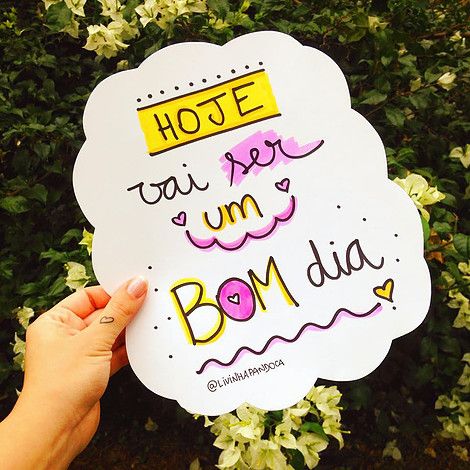 HOJE
vai ser
um
BOM dia
@LIVINHAPANDOCA